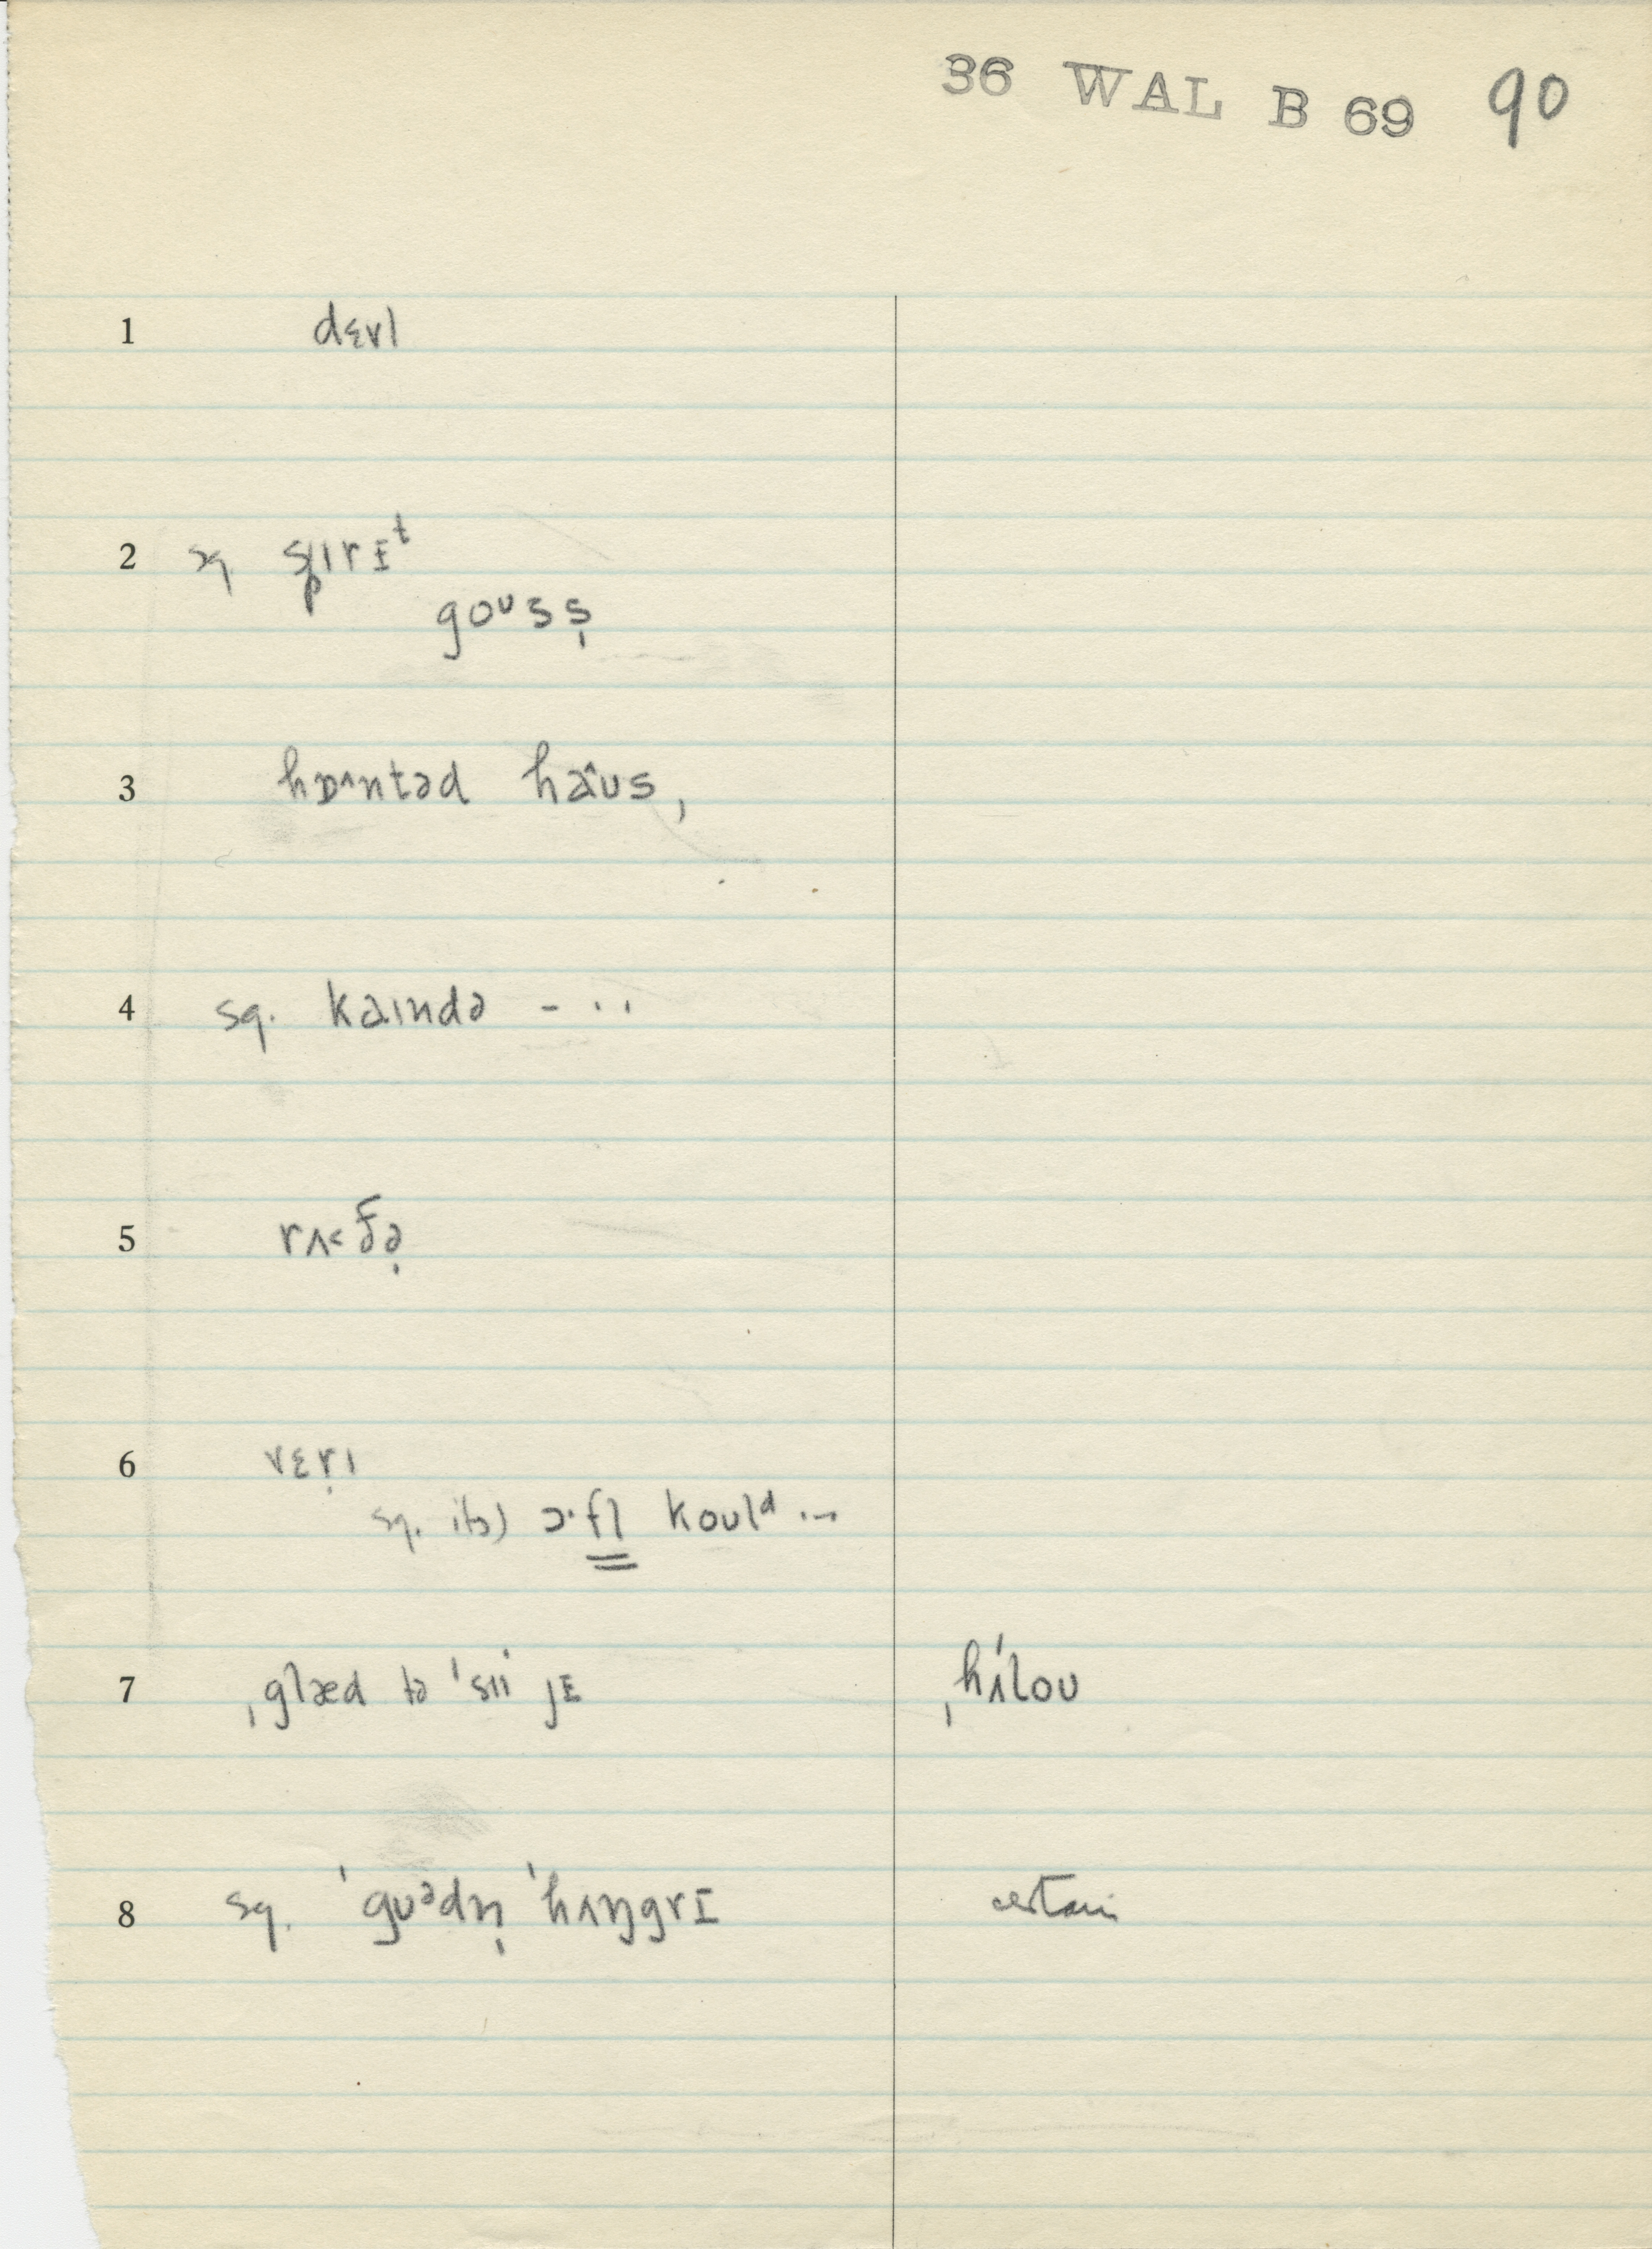 36 WAL B 69 90
1 dɛvl
2 sq. spɪrɪᵗ
goᶷsṣ
3 hɒ^ntəd haˆʊs,
4 sq. kaɪndə - · ·
5 rʌ<ðə̣
6 vɛṛɪ
sq. its) ɔ·fl koulᵈ ...
7 ˌglæd tə ˈsiɪ jɪ ˌhʌ́loʊ
8 sq. ˈgʊᵊdn̩ ˈhʌŋgrɪ certain